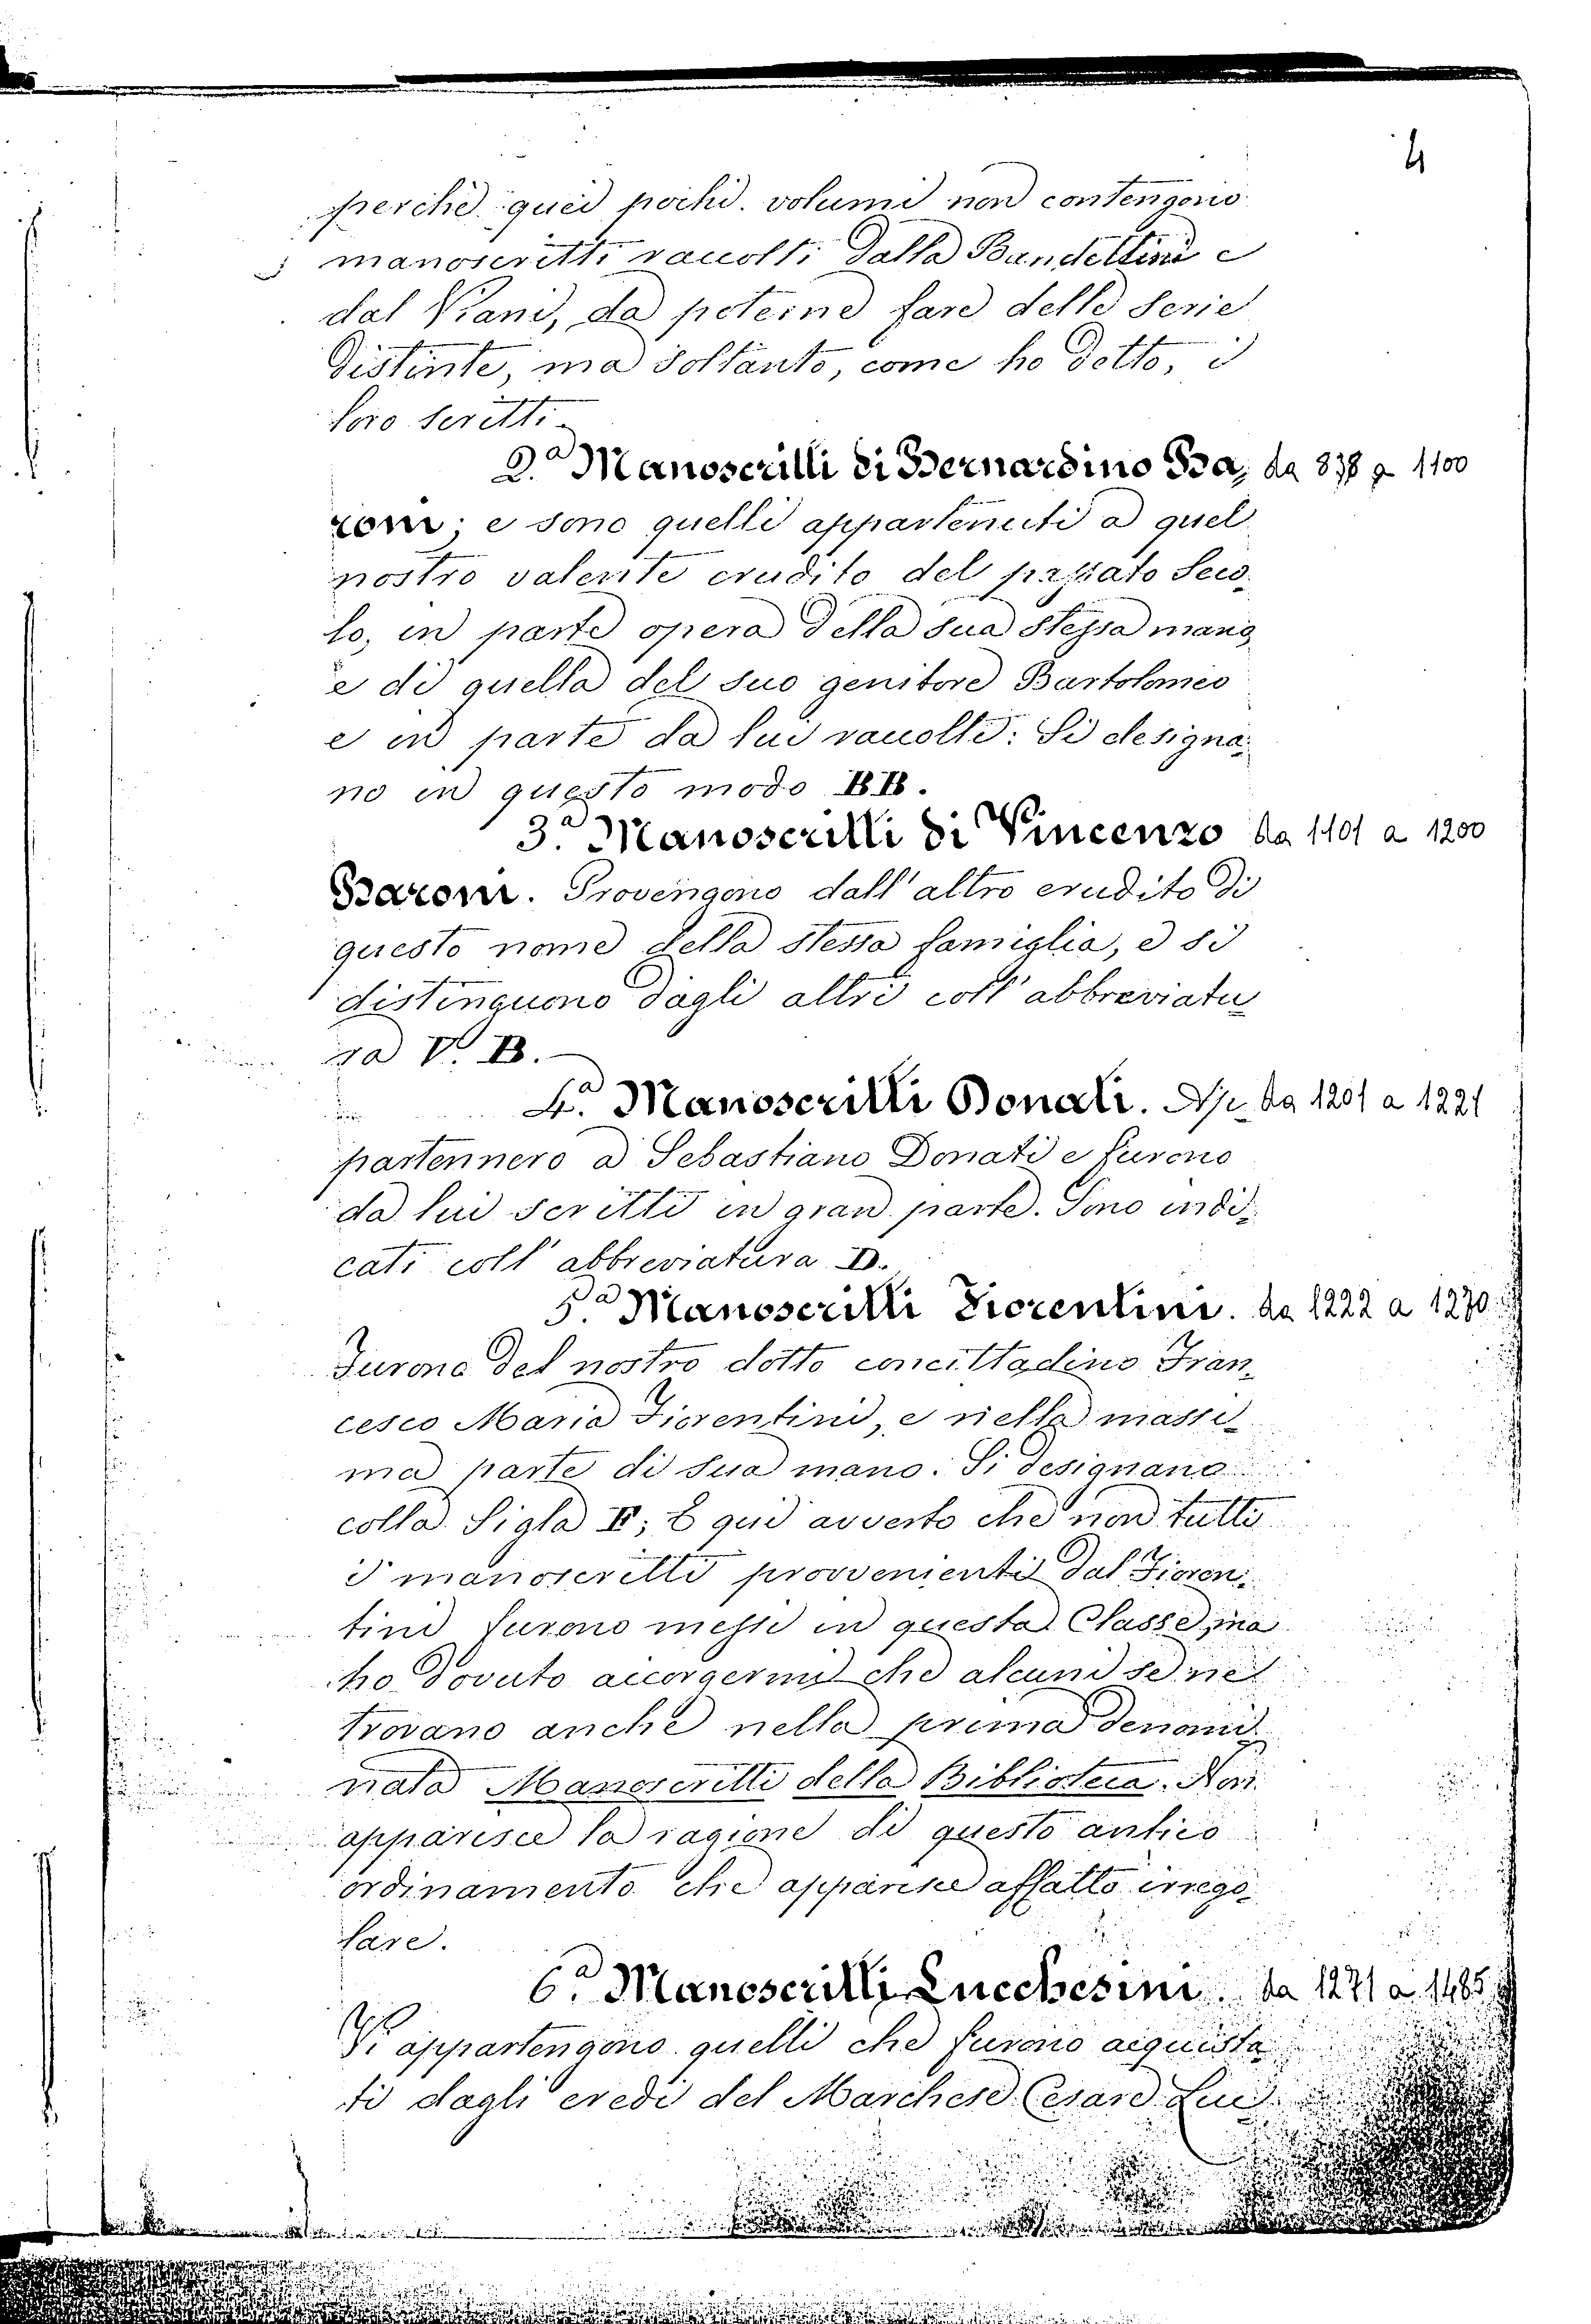 4
perchè quei pochi volumi non contengono
manoscritti raccolti dalla Bandettini e
dal Viani, da poterne fare delle serie
distinte, ma soltanto, come ho detto, i
loro scritti.
2.a Manoscritti di Bernardino Ba, da 838 a 1100
roni; e sono quelli appartenuti a quel
nostro valente erudito del passato Seco-
lo, in parte opera della sua stessa mano,
e di quella del suo genitore Bartolomeo
e in parte da lui raccolti: Si designa-
no in questo modo BB.
3.a Manoscritti di Vincenzo da 1101 a 1200
Baroni. Provengono dall'altro erudito di
questo nome della stessa famiglia, e si
distinguono dagli altri coll'abbreviatu-
ra V. B.
4.a Manoscritti Donati. Ap- da 1201 a 1221
partennero a Sebastiano Donati e furono
da lui scritti in gran parte. Sono indi-
cati coll'abbreviatura D.
5.a Manoscritti Fiorentini. da 1222 a 1270
Furono del nostro dotto concittadino Fran-
cesco Maria Fiorentini, e nella massi-
ma parte di sua mano. Si designano
colla Sigla F; E qui avverto che non tutti
i manoscritti provvenienti dal Fioren-
tini furono messi in questa Classe, ma
ho dovuto accorgermi che alcuni se ne
trovano anche nella prima denomi-
nata Manoscritti della Biblioteca. Non
apparisce la ragione di questo antico
ordinamento che apparisce affatto irrego-
lare.
6.a Manoscritti Lucchesini. da 1271 a 1485
Vi appartengono quelli che furono acquista-
ti dagli eredi del Marchese Cesare Luc